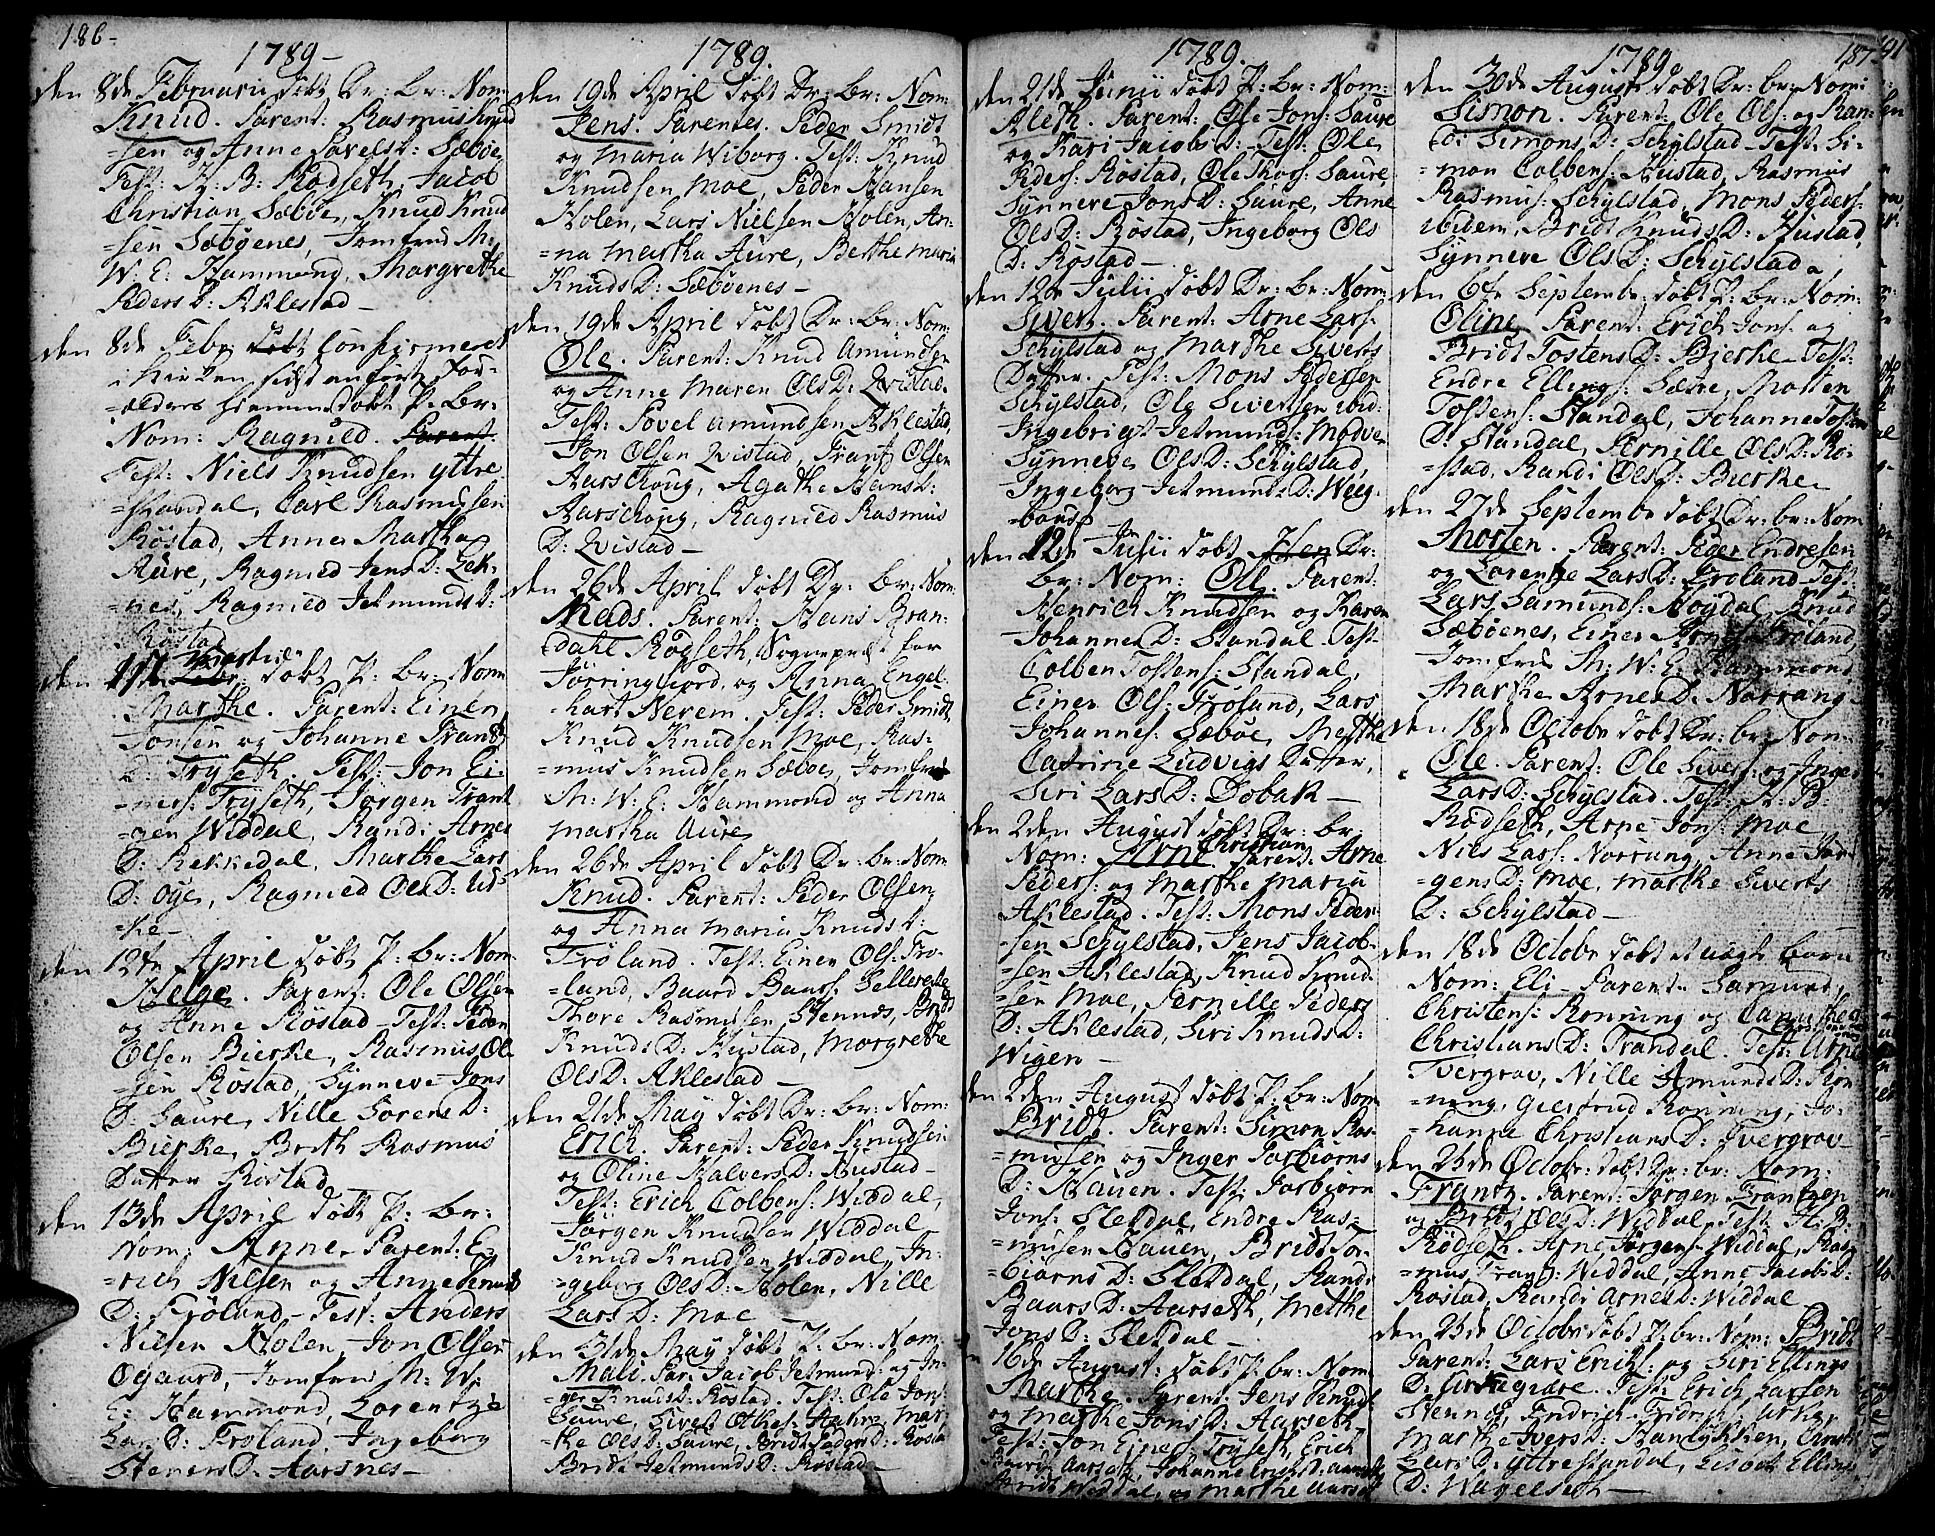 186-
1789-
den 8de Februarii döbt Dr: br: Nom:
Knud. Parent: Rasmus Knud
=sen og Anne Povels D: Sæbøe
Test: H: B: Rødseth, Jacob
Christian Sæbøe, Knud Knud
=sen Sæbøenes, Jomfrue M:
W: E: Hammond, Margrethe
Peders D: Aklestad-
den 8de Febr döbt Confirmeret
i Kirken sidst anført For-
=ældres hiemmedøbt P: br:
Nom: Ragnild. Parent
Test: Niels Knudsen yttre
=standal, Carl Rasmussen
Røstad, Anne Martha
Aure, Ragnild Jens D: Lek-
=nes, Ragnild Jetmunds D:
Røstad
Martii
den döbt P: br: Nom
Marthe. Parent: Einer
Jonsen og Johanne Frants
D: Tryseth, Test: Jon Ei-
=ners: Tryseth, Jørgen Frant
=zen Widdal, Randi Arnes
D: Rekkedal, Marthe Lars
D: Øye, Ragnild Ols D: Urs-
=ke-
den 12te April döbt P: br: Nom
Helge. Parent: Ole Olsen
og Anne Røstad- Test: Peder
Olsen Bierke, Rasmus Ole
=sen Røstad, Synneve Jons
D: Saure, Nille Sørens D:
Bierke, Brith Rasmus
Datter Røstad
den 13de April döbt P: br:
Nom: Anne. Parent: E-
=rich Nilsen og Anne Knuds
D: Frøland- Test: Anders
Nilsen Holen, Jon Olsen
Øgaard, Jomfrue M: W:
E: Hammond, Lorentze
Lars D: Frøland, Ingeborg
Steners D: Aarsnes-
1789.
den 19de April döbt Dr: br: Nom:
Jens. Parentes. Peder Smidt
og Maria Wiborg. Test: Knud
Knudsen Moe, Peder Hansen
Holen, Lars Nielsen Holen, An-
=na Martha Aure, Berthe Maria
Knuds D: Sæbøenes-
den 19de April döbt Dr: br: Nom:
Ole. Parent: Knud Amundsen
og Anne Maren Ols D: Qvistad.
Test: Povel Amundsen Aklestad,
Jon Olsen Qvistad, Frants Olsen
Aarschoug, Agathe Hans D:
Aarschoug, Ragnild Rasmus
D: Qvistad-
den 26de April döbt Dr: br: Nom:
Mads. Parent: Hans Bran-
=dahl Rødseth, Sognepræst for
Jørringfiord, og Anna Engel-
=hart Nerem. Test: Peder Smidt
Knud Knudsen Moe, Ras-
=mus Knudsen Sæbøe, Jomfrue
M: W: E: Hammond og Anna
Martha Aure
den 26de April döbt Dr: br: Nom
Knud. Parent: Peder Olsen
og Anna Maria Knuds D:
Frøland. Test: Einer Ols: Frø-
=land, Baard Baars: Sellereite
Thore Rasmussen Stennes, Brit
Knuds D: Hustad, Morgrethe
Ols D: Aklestad-
den 21de May döbt Dr: br: Nom:
Erich. Parent: Peder Knudsen
og Oline Halvers D: Hustad-
Test: Erich Colbens: Widdal,
Jørgen Knudsen Widdal
Knud Knudsen Widdal, In-
=geborg Ols D: Holen, Nille
Lars D: Moe-
den 31de May döbt P: br: Nom:
Mali. Par: Jacob Jetmund: og In-
=ger Knuds D: Røstad. Test: Ole Jons:
Saure, Mar-
=the Ols D: Saure, Bridt Peders D: Røsta
Bridt Jetmunds D: Røstad-
1789.
den 21de Junii döbt P: br: Nom:
Aleth. Parent: Ole Jons: Saure
og Kari Jacobs D: Test: Ole
Peders: Røstad, Ole Thors: Saure,
Synneve Jons D: Saure, Anne
Ols D: Røstad, Ingeborg Ols
D: Røstad-
den 12te Julii döbt Dr: br: Nom:
Sivert. Parent: Arne Lars:
Schylstad og Marthe Siverts
Datter. Test: Mons Pedersen
Schylstad, Ole Sivertsen ibid:
Ingebrigt Jetmunds: Mødve
Synneve Ols D: Schylstad,
Ingeborg Jetmunds D: Weeg-
=bous
den 12te Julii döbt Dr:
br: Nom: Ole. Parent:
Henrich Knudsen og Karen
Johannes D: Standal. Test:
Colben Tostens: Standal,
Einer Ols: Frøland, Lars
Johannes: Sæbøe, Methe
Catrine Ludvigs Datter,
Siri Lars D: Dobak-
den 2den August döbt Dr: br:
Nom: Arne Christian Parent: Arne
Peders: og Marthe Maria
Aklestad. Test: Mons Peder-
=sen Schylstad, Jens Jacob-
=sen Aklestad, Knud Knud
=sen Moe, Pernille Peders
D: Aklestad, Siri Knuds D:
Wigen-
den 2den August döbt P: br: Nom
Bridt. Parent: Simon Ras-
=musen og Inger Torbiørns
D: Hauen. Test: Torbiørn
Jons: Sletdal, Endre Ras-
=musen Hauen, Bridt Tor-
=biørns D: Sletdal, Randi
Baars D: Aarseth, Methe
Jons D: Sletdal-
16de August: döbt P: br: Nom
Marthe. Parent: Jens Knuds
og Marthe Jons D: Aarseth
Test: Jon Einers: Tryseth, Erich
Aarseth, Johanne Erichs D: Aarseth
Bridt Widdal, og Marthe Aarset
1789.
187
den 30de August döbt Dr: br: Nomi
Simon. Parent: Ole Ols: og Ran-
=di Simons D: Schylstad- Test: Si-
=mon Colbens: Hustad, Rasmus
Rasmus: Schylstad, Mons Peders:
ibidem, Bridt Knuds D: Hustad,
Synneve Ols D: Schylstad-
den 6te Septembr: döbt P: br: Nom:
Oline. Parent: Erich Jons: og
Bridt Tostens D: Bierke- Test:
Endre Ellings: Sætre, Morten
Tostens: Standal, Johanne Tosten
D: Standal, Pernille Ols D: Rø-
=stad, Randi Ols D: Bierke-
den 27de Septembr döbt Dr: br: Nom
Morten. Parent: Peder Endresen
og Lorentze Lars D: Frøland. Test:
Lars Samunds: Nøgdal, Knud
Sæbøenes, Einer Frøland,
Jomfrue M: W: E: Hammond
Marthe Arnes D: Norrang-
den 18de Octobr döbt Dr: br: Nom:
Ole. Parent: Ole Sivers: og Inger
Lars D: Schylstad. Test: H: B:
Rødseth, Arne Jons: Moe
Niels Lars: Norrung, Anne Jør-
=gens D: Moe, Marthe Siverts
D: Schylstad-
den 18de Octobr döbt et uægte barn
Nom: Eli- Parent: Samund
Christens: Rønning og
Christians D: Trandal. Test: Arne
Tvergrov, Nille Amunds D: Røn
=ning, Giertrud Rønning, Jo-
=hanne Christians D: Tvergrov-
den 25de Octobr: döbt Dr: br: Nom:
Frantz. Parent: Jørgen Frantzen
og Brit Ols D: Widdal. Test: H: B:
Rødseth. Arne Jørgens: Widdal, Ras
=mus Frants: Widdal, Anne Jacobs D:
Røstad, Randi Arnes D: Widdal
den 25de Octobr döbt P: br: Nom: Bridt
Parent: Lars Erichs: og Siri Ellings
D: Test: Erich Larsen
Stennes, Fridrich Fridrichs: Urke,
Marthe Ivers D: Christi
Lars D: yttre standal, Lisbet Ellings
D: Wagelseth-